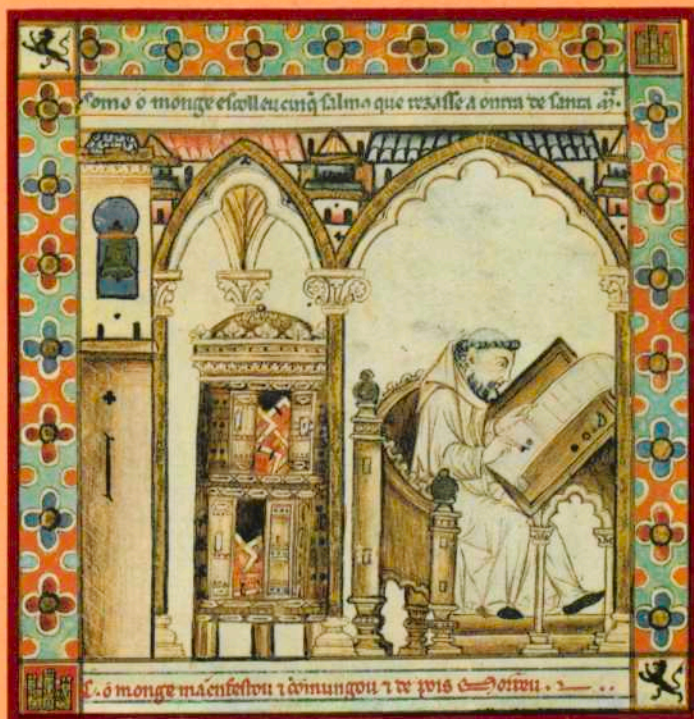 Como o monge escolleu cinq̃ salmos que rezasse a onrra de santa m̃.
C. o monge mãenfestou ⁊ cõmungou ⁊ de pois morreu.